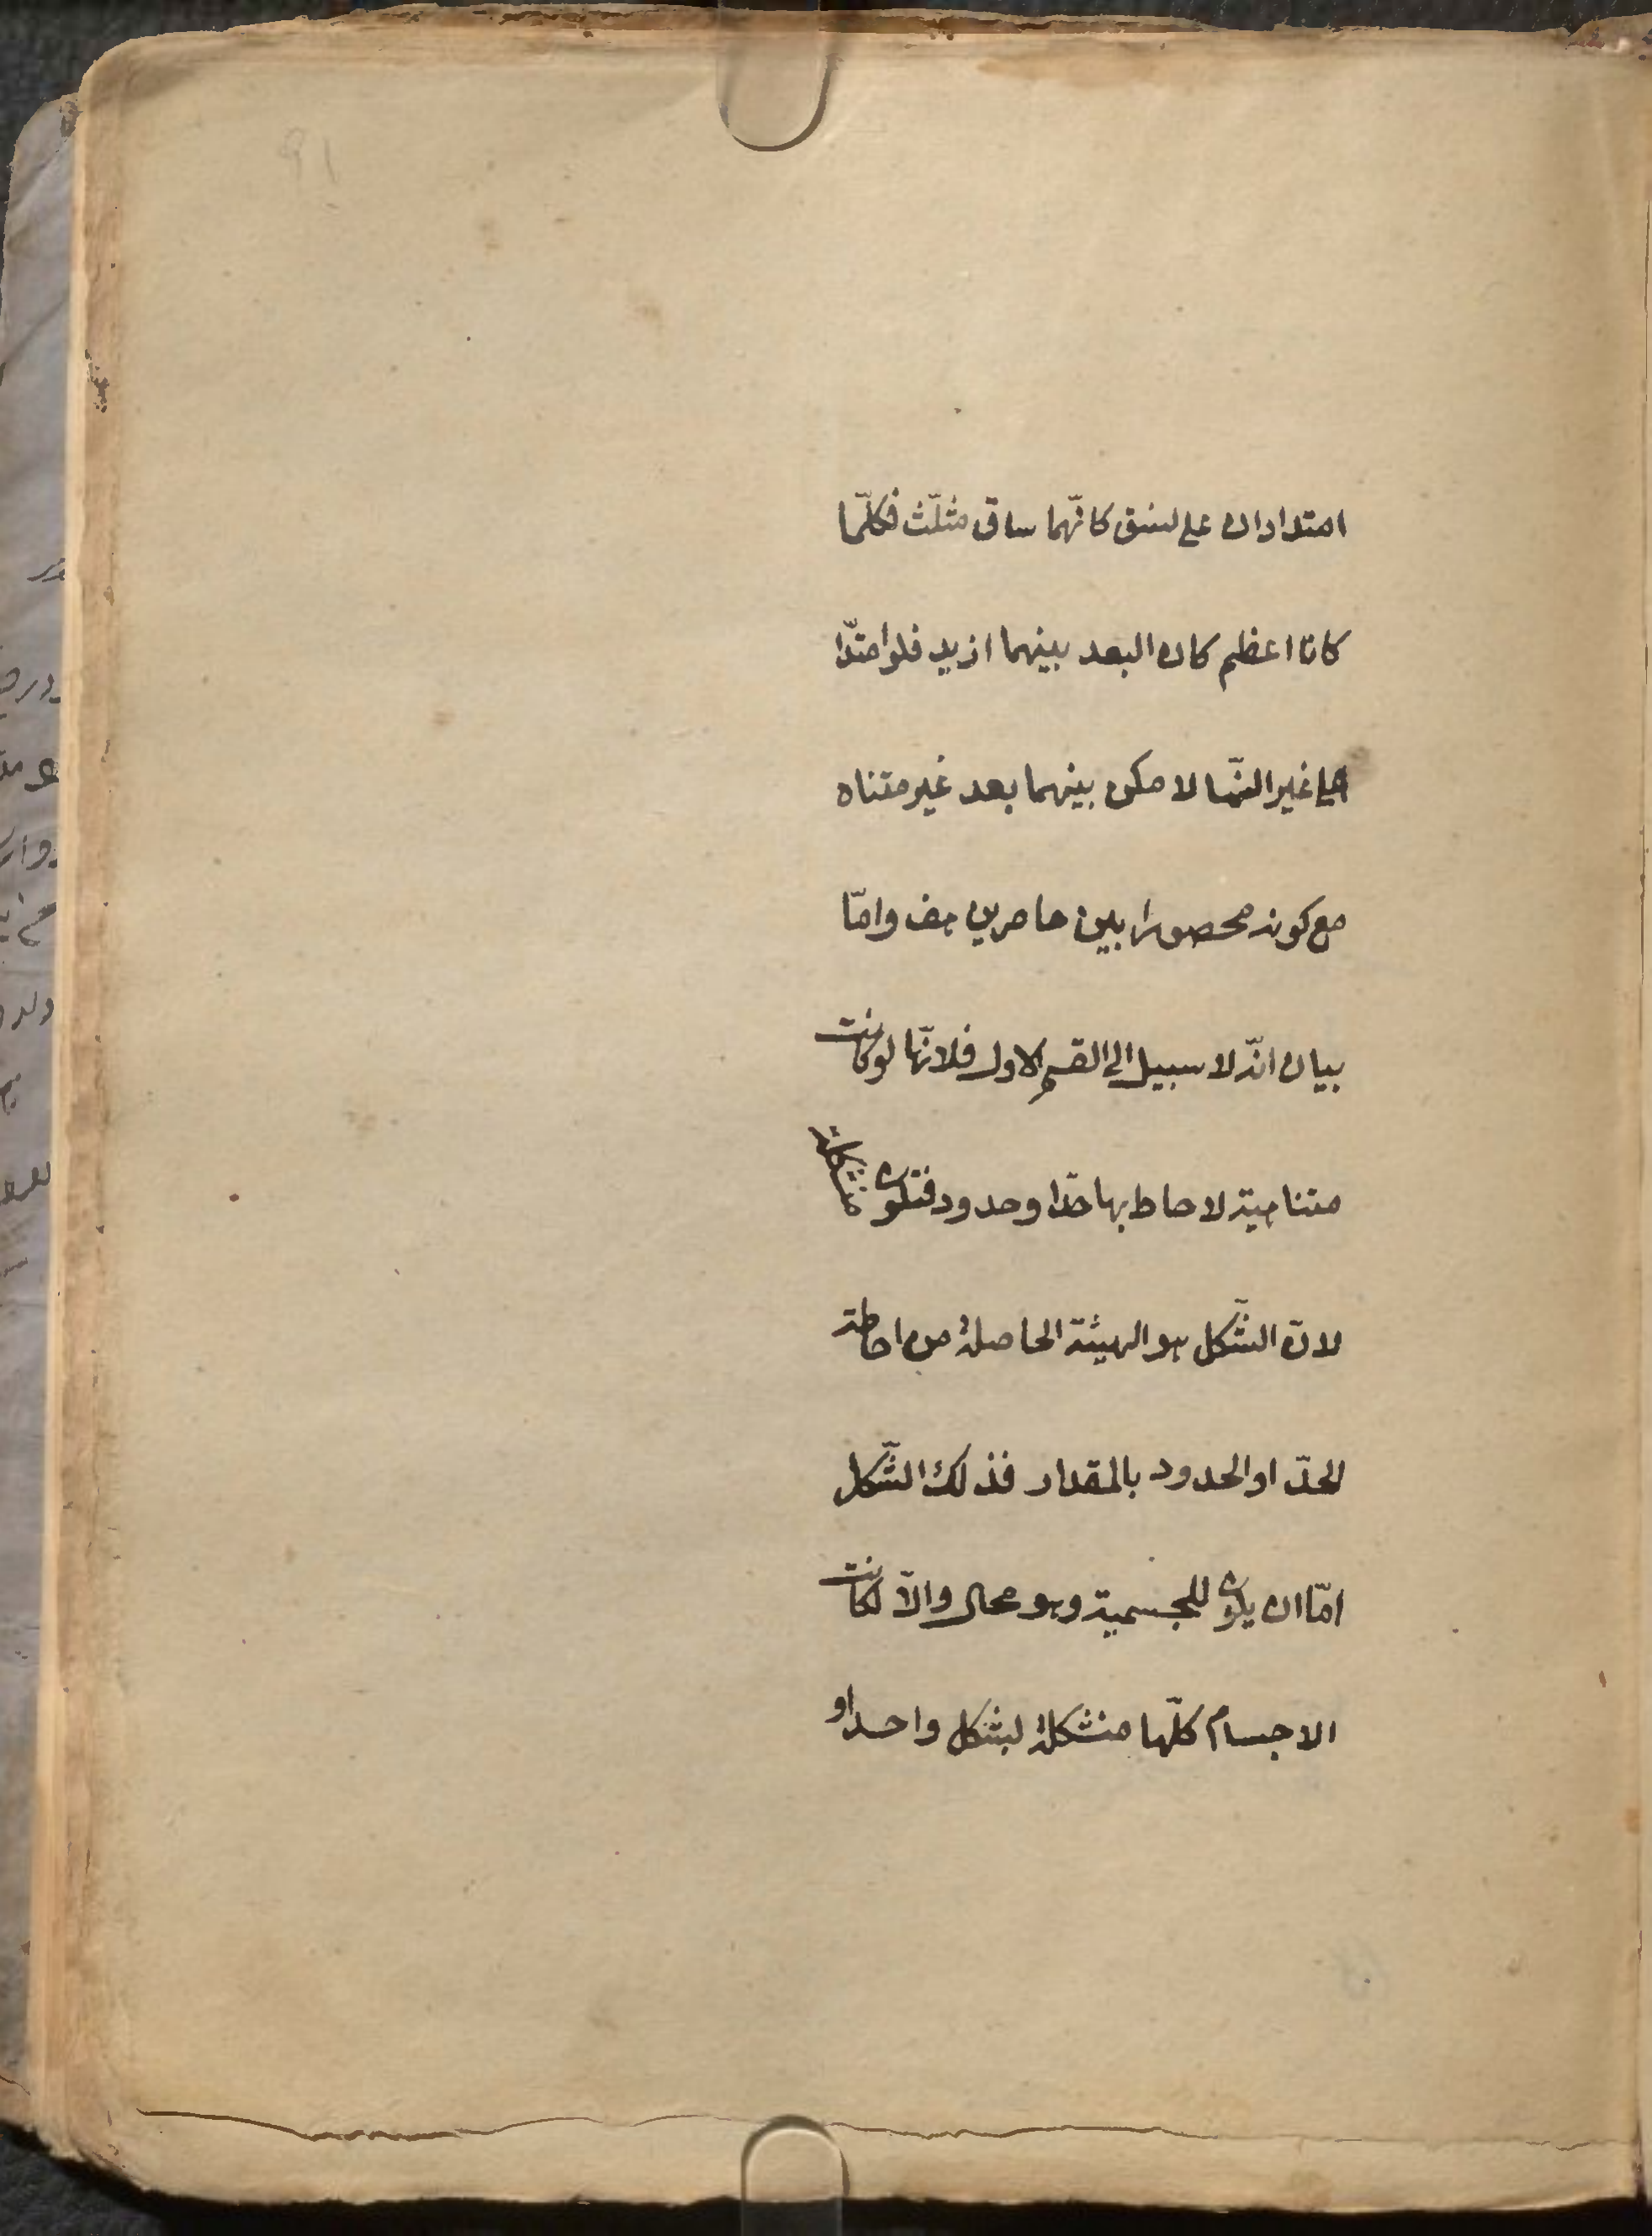 امتدادان على نسق كانّهما ساقى مثلّث فكلّما
كانا اعظم كان البعد بينهما ازيد فلو امتدّا
الى غير النّها لامكن بينهما بعد غير متناه
مع كونه محصورا بين حاصرين هف وامّا
بيان انّه لا سبيل الى القسم الاول فلانّها لو كانت
متناهية لاحاط بها حدّ او حدود فتكون متشكلة
لانّ الشّكل هو الهيئة الحاصلة من احاطة
الحدّ او الحدود بالمقدار فذلك الشّكل
امّا ان يكون للجسمية وهو محال والّا لكانت
الاجسام كلّها متشكلة بشكل واحد او